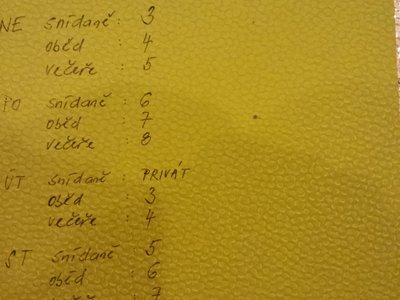 NE snídaně : 3
oběd : 4
večeře : 5
PO snídaně : 6
oběd : 7
večeře : 8
ÚT snídaně : PRIVÁT
oběd : 3
večeře : 4
ST snídaně : 5
oběd : 6
večeře : 7